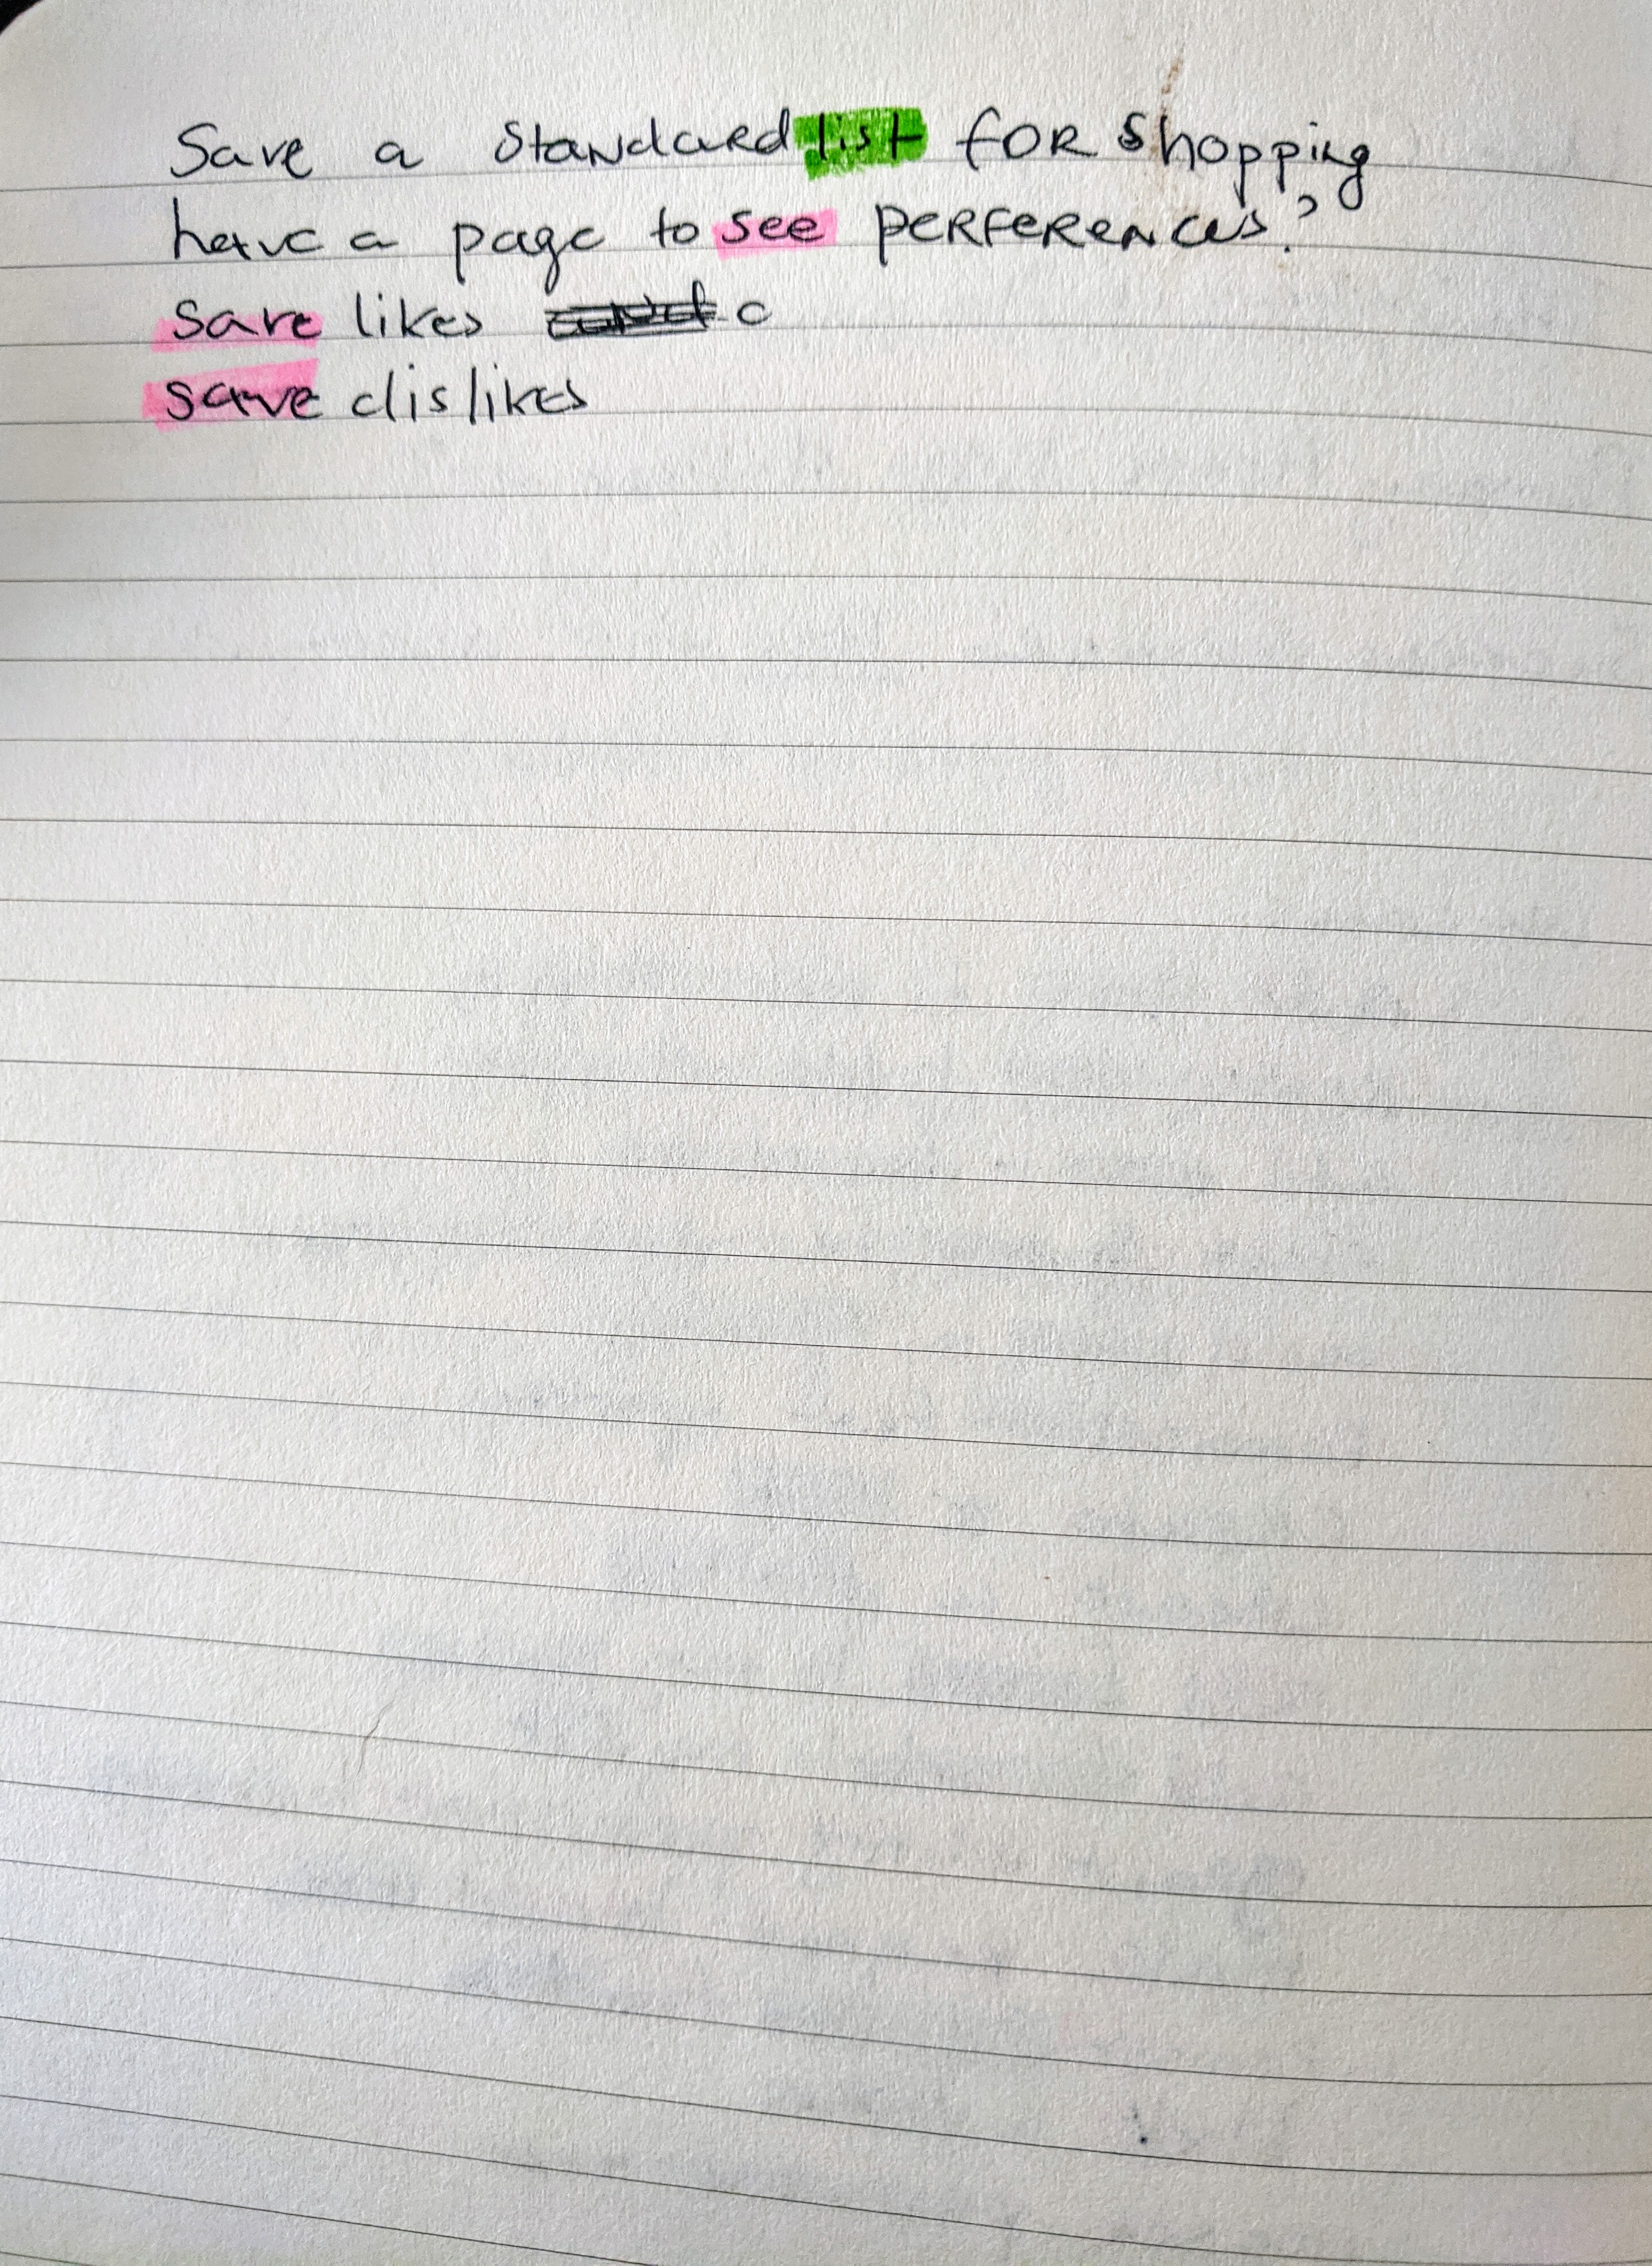 Save a standard list for shopping
have a page to see perferences?
save likes c
save dislikes